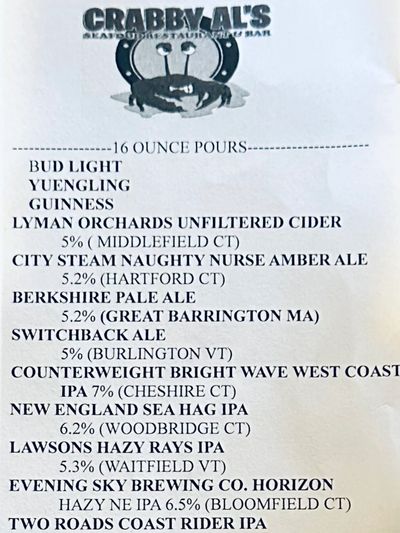 CRABBY AL'S
SEAFOOD RESTAURANT & BAR
------------------16 OUNCE POURS----------------------
BUD LIGHT
YUENGLING
GUINNESS
LYMAN ORCHARDS UNFILTERED CIDER
5% ( MIDDLEFIELD CT)
CITY STEAM NAUGHTY NURSE AMBER ALE
5.2% (HARTFORD CT)
BERKSHIRE PALE ALE
5.2% (GREAT BARRINGTON MA)
SWITCHBACK ALE
5% (BURLINGTON VT)
COUNTERWEIGHT BRIGHT WAVE WEST COAST
IPA 7% (CHESHIRE CT)
NEW ENGLAND SEA HAG IPA
6.2% (WOODBRIDGE CT)
LAWSONS HAZY RAYS IPA
5.3% (WAITFIELD VT)
EVENING SKY BREWING CO. HORIZON
HAZY NE IPA 6.5% (BLOOMFIELD CT)
TWO ROADS COAST RIDER IPA